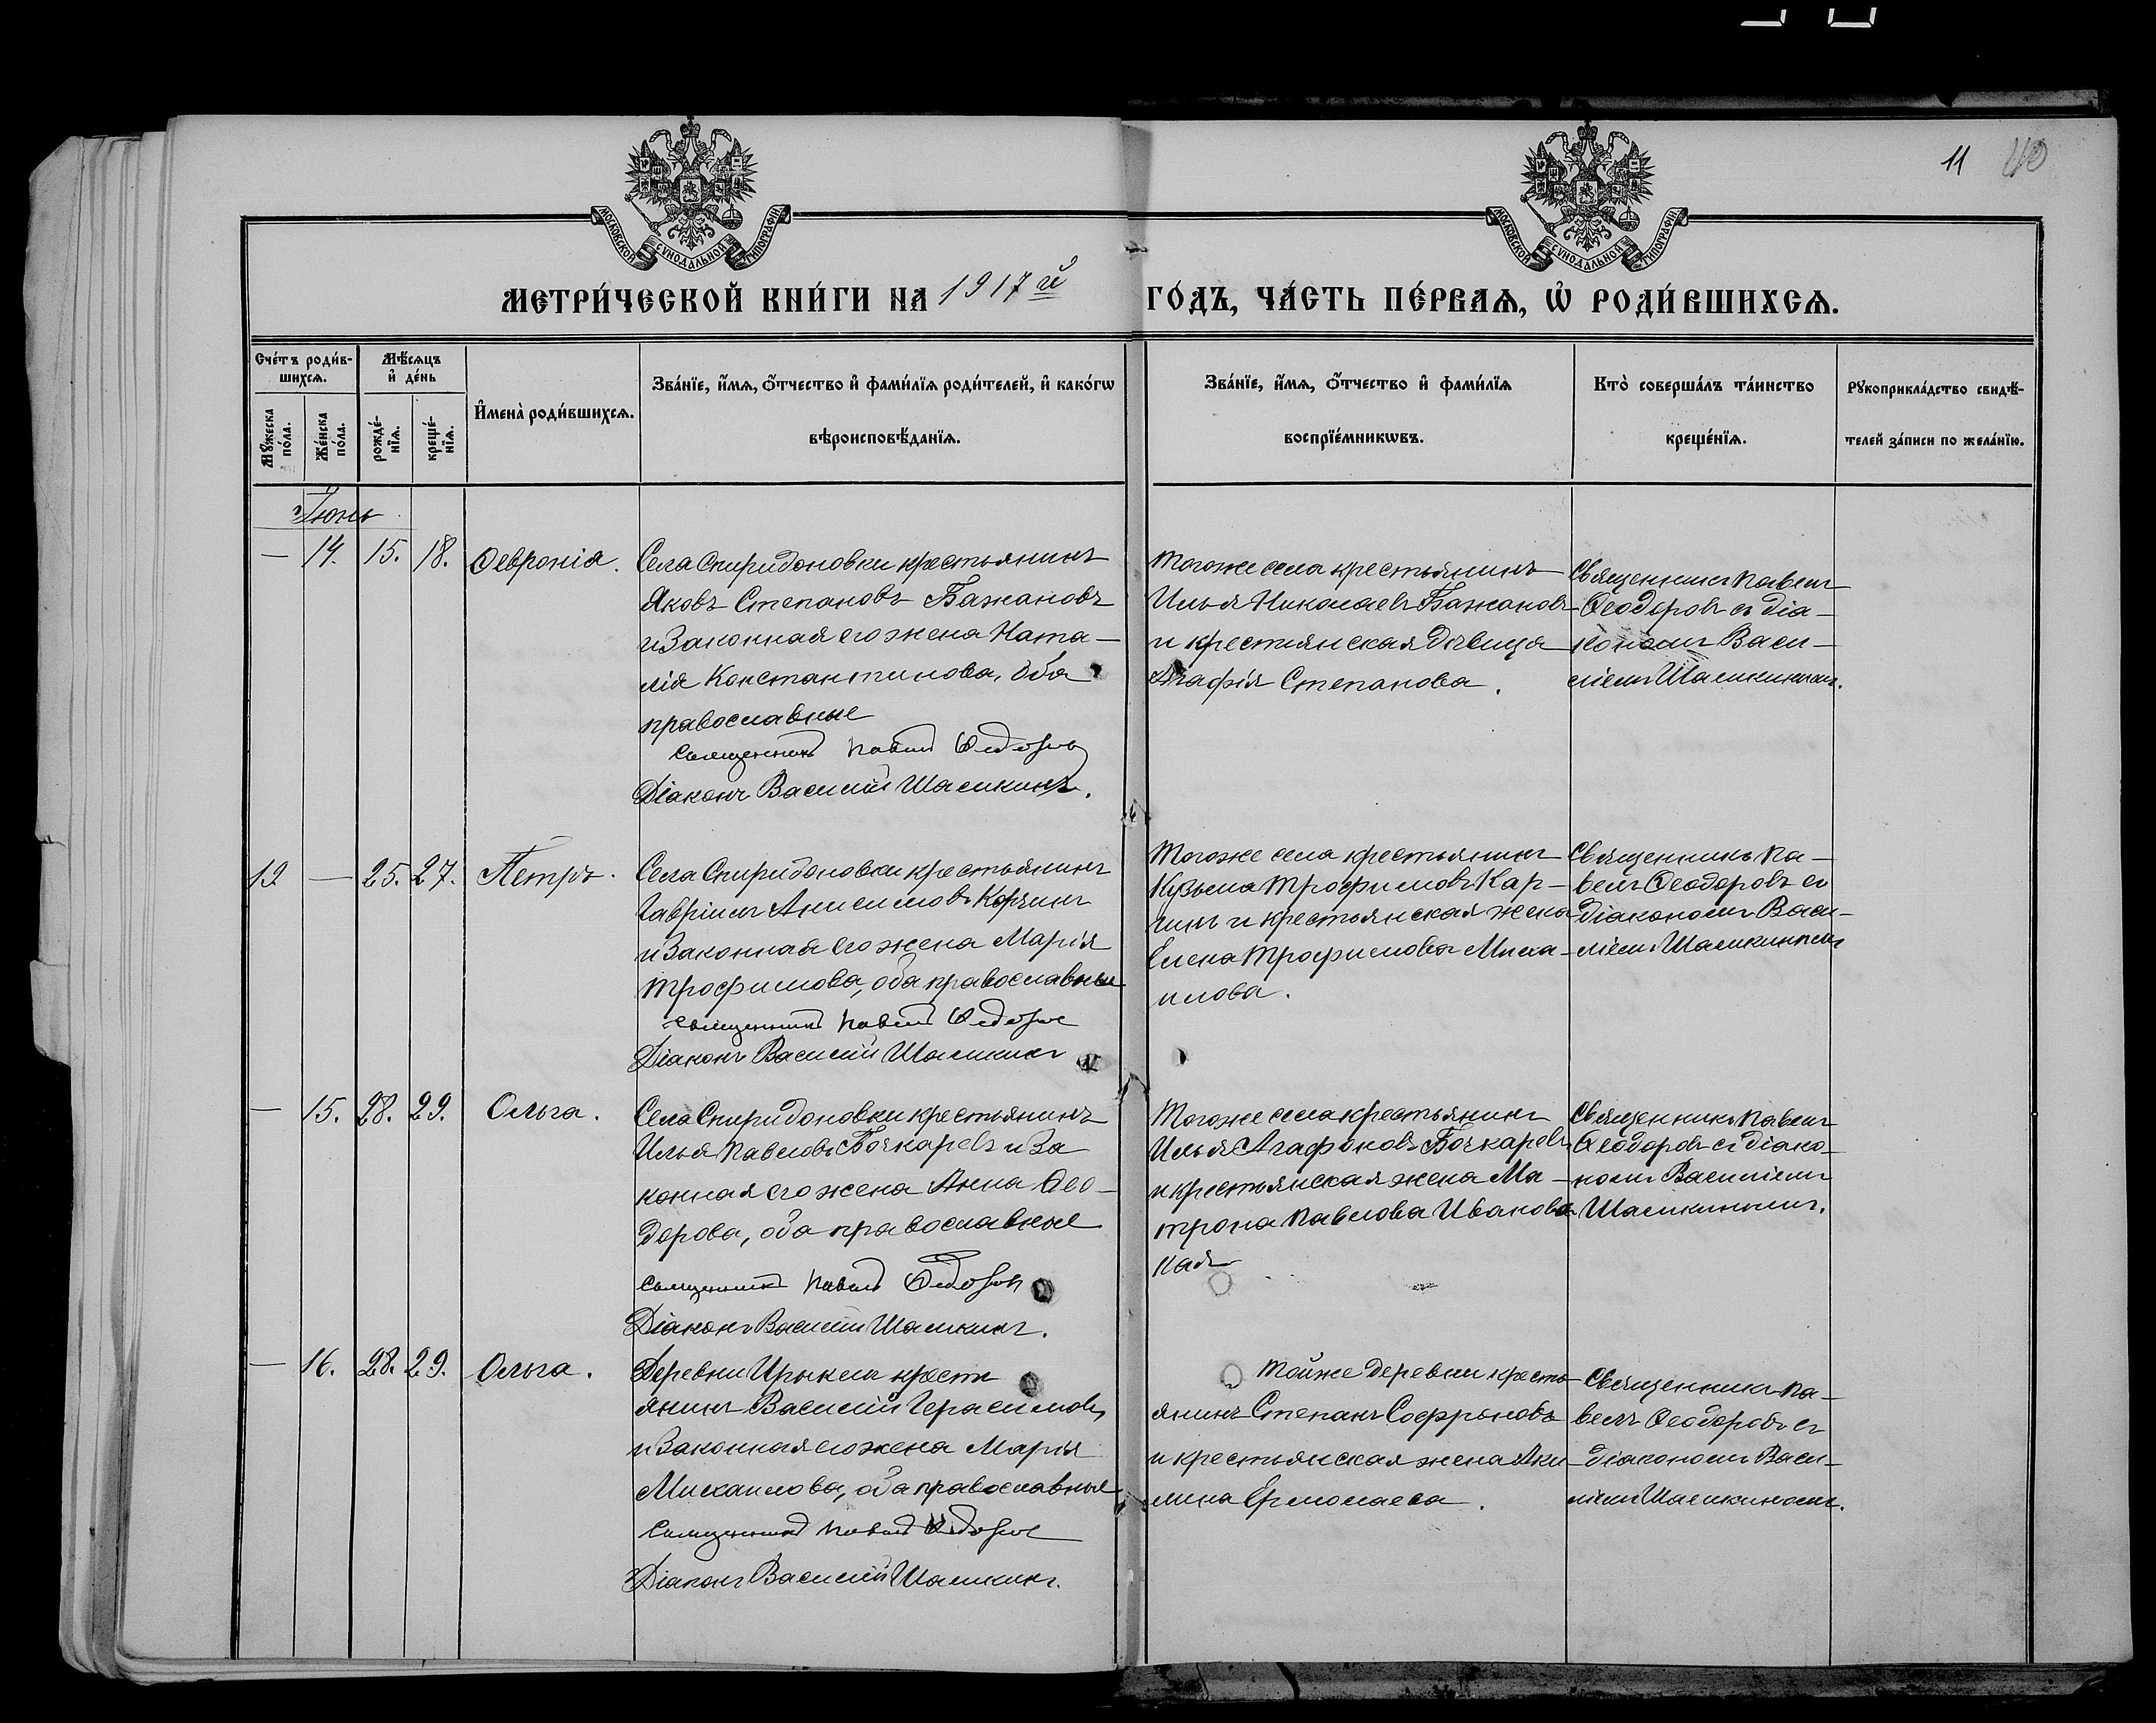 11 40
МОСКОВСКОЙ СѴНОДАЛЬНОЙ ТИПОГРАФІИ
МОСКОВСКОЙ СѴНОДАЛЬНОЙ ТИПОГРАФІИ
МЕТРИ́ЧЕСКОЙ КНИ́ГИ НА 1917й ГО́ДЪ, ЧА́СТЬ ПЕ́РВАѦ, Ѡ҆ РОДИ́ВШИХСѦ.
Сче́тъ роди́в-
шихсѧ.
Мꙋ́жеска
по́ла.
Же́нска
по́ла.
Мѣ́сѧцъ
и҆ де́нь
рожде́-
нїѧ.
креще́-
нїѧ.
И҆мена̀ роди́вшихсѧ.
Зва́нїе, и҆́мѧ, ѻ҆́тчество и҆ фами́лїѧ роди́телей, и҆ како́гѡ
вѣроисповѣ́данїѧ.
Зва́нїе, и҆́мѧ, ѻ҆́тчество и҆ фами́лїѧ
воспрїе́мникѡвъ.
Кто̀ соверша́лъ та́инство
креще́нїѧ.
Рꙋкоприкла́дство свидѣ́-
телей за́писи по жела́нїю.
Іюнь
— 14. 15. 18. Ѳевронія.
Села Спиридоновки крестьянинъ
Яковъ Степановъ Бажановъ
и Законная его жена Ната-
лія Константинова, оба
православные
Священникъ Павелъ Ѳедоровъ
Діаконъ Василій Шамкинъ.
Тогоже села крестьянинъ
Илья Николаевъ Бажановъ
и крестьянская дѣвица
Агафія Степанова.
Священникъ Павелъ
Ѳеодоровъ съ діа-
кономъ Васи-
ліемъ Шамкинымъ.
12 — 25. 27. Петръ.
Села Спиридоновки крестьянинъ
Гавріилъ Анисимовъ Карчинъ
и Законная его жена Марія
Трофимова, оба православные
Священникъ Павелъ Ѳедоровъ
Діаконъ Василій Шамкинъ
Тогоже села крестьянинъ
Кузьма Трофимовъ Кар-
чинъ и крестьянская жена
Елена Трофимова Миха-
илова.
Священникъ Па-
велъ Ѳеодоровъ съ
діакономъ Васи-
ліемъ Шамкинымъ
— 15. 28. 29. Ольга.
Села Спиридоновки крестьянинъ
Илья Павловъ Бочкаревъ и За
конная его жена Анна Ѳео-
дорова, оба православные
Священникъ Павелъ Ѳедоровъ
Діаконъ Василій Шамкинъ.
Тогоже села крестьянинъ
Илья Агафоновъ Бочкаревъ
и крестьянская жена Ма-
трона Павлова Ивановс-
кая
Священникъ Павелъ
Ѳеодоровъ съ діако-
номъ Василіемъ
Шамкинымъ.
— 16. 28. 29. Ольга.
Деревни Ирыклы крестья
янинъ Василій Герасимовъ
и Законная его жена Марія
Михаилова, оба православные
Священникъ Павелъ Ѳедоровъ
Діаконъ Василій Шамкинъ.
Тойже деревни кресть
янинъ Степанъ Софроновъ
и крестьянская жена Аки-
лина Ермолаева.
Священникъ Па-
велъ Ѳеодоровъ съ
діакономъ Васи-
ліемъ Шамкинымъ.